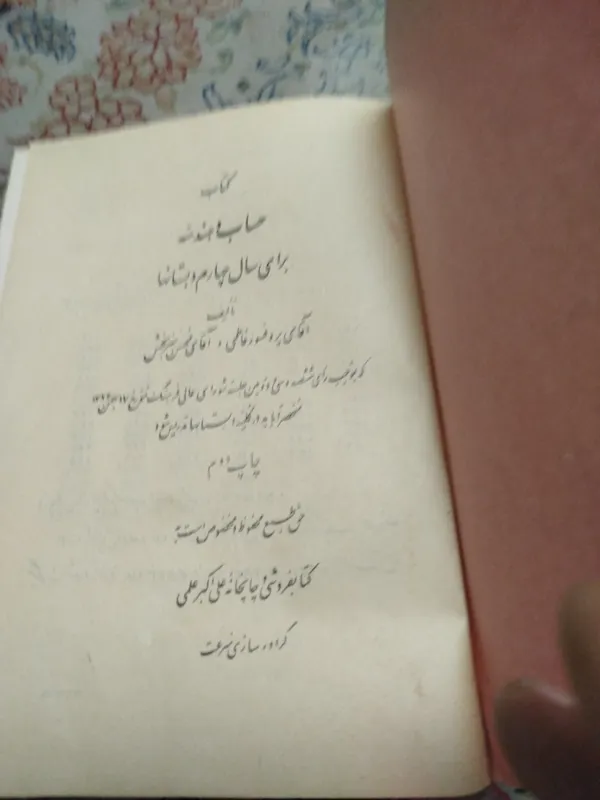 کتاب
حساب و هندسه
برای سال چهارم دبستانها
تألیف
آقای پرفسور فاطمی و آقای محسن هنربخش
که بموجب رأی ششصد و سی و دومین جلسه شورای عالی فرهنگ
منحصراً باید در کلیه دبستانها تدریس شود
چاپ دوم
حق طبع محفوظ و مخصوص است به
کتابفروشی و چاپخانه علی اکبر علمی
گراور سازی سرعت